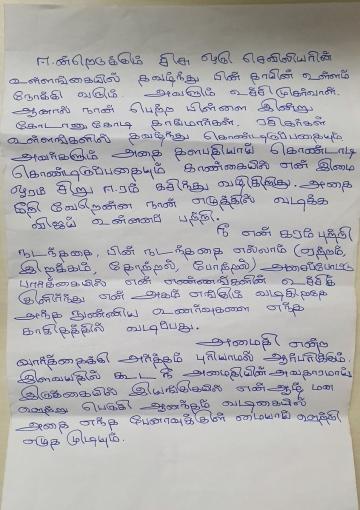 ஈன்றெடுக்கும் சிசு ஒரு செவிலியரின்
உள்ளங்கையில் தவழ்ந்து பின் தாயின் உள்ளம்
நோக்கி வரும். அவளும் உச்சி முகர்வாள்.
ஆனால் நான் பெற்ற பிள்ளை இன்று
கோடானுகோடி தாய்மார்கள். ரசிகர்கள்
உள்ளங்களில் தவழ்ந்து கொண்டிருப்பதையும்
அவர்களும் அதை தளபதியாய் கொண்டாடி
கொண்டிருப்பதையும் காண்கையில் என் இமை
ஓரம் சிறு ஈரம் கசிந்து வடிகிறது. அதை
மீறி வேறென்ன நான் எழுத்தில் வடிக்க
விஜய் உன்னைப் பற்றி.
நீ என் கரம் பற்றி
நடந்ததை, பின் நடந்ததை எல்லாம் (ஏற்றம்,
இறக்கம், தோற்றல், போற்றல்) அசைபோட்டு
பார்க்கையில் என் எண்ணங்களின் உச்சி
குளிர்ந்து என் அகம் எங்கும் வடிகிறதே
அந்த நுண்ணிய உணர்வுகளை எந்த
காகிதத்தில் வடிப்பது.
அமைதி என்ற
வார்த்தைக்கு அர்த்தம் புரியாமல் ஆர்ப்பரிக்கும்
இளவயதில் கூட நீ அமைதியின் அவதாரமாய்
இருக்கையில் இயங்குகையில் என் ஆழ் மன
ஊற்று பெருகி ஆனந்தம் வடிகையில்
அதை எந்த பேனாவுக்குள் மையாய் ஊற்றி
எழுத முடியும்.